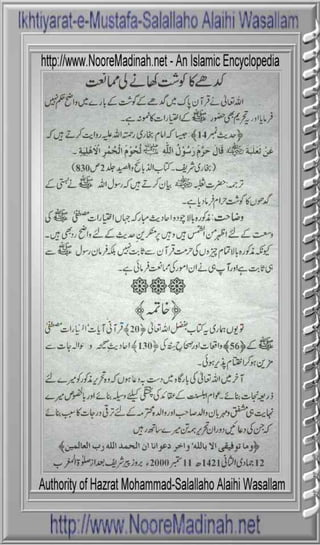 Ikhtiyarat-e-Mustafa-Salallaho Alaihi Wasallam
http://www.NooreMadinah.net - An Islamic Encyclopedia
گدھے کا گوشت کھانے کی ممانعت
اللہ تعالیٰ نے قرآن پاک میں گدھے کے گوشت کے بارے میں واضح حکم نہیں
فرمایا اور یہ تحریم بھی حضور ﷺ کے اختیارات کا نمونہ ہے۔
﴿حدیث نمبر 14﴾: جیسا کہ امام بخاری رحمۃ اللہ علیہ روایت کرتے ہیں کہ
عَنْ ثَعْلَبَةَ قَالَ حَرَّمَ رَسُوْلُ اللّٰهِ ﷺ لُحُوْمَ الْحُمُرِ الْاَهْلِيَةِ۔
(بخاری شریف۔ کتاب الذبائح والصید جلد 2 ص 830)
ترجمہ: حضرت ثعلبہ بیان کرتے ہیں کہ رسول اللہ ﷺ نے بستی کے
گدھوں کا گوشت حرام فرما دیا ہے۔
وضاحت: مذکورہ بالا چودہ احادیث مبارکہ جہاں اختیارات مصطفیٰ ﷺ کی
وسعت کے لئے اظہر من الشمس ہیں وہیں پر منکرین حدیث کے لئے واضح رد بھی ہیں۔
کیونکہ مذکورہ بالا تمام چیزوں کی حرمت قرآن سے ثابت نہیں بلکہ فرمان رسول ﷺ سے
ہی ثابت ہے اور آپ ہی نے ان امور کی ممانعت فرمائی ہے۔
﴿خاتمہ﴾
تو یوں ہماری یہ کتاب بفضل اللہ تعالیٰ ﴿20﴾ قرآنی آیات
کے ﴿56﴾ واقعات اور صحاح ستہ کی ﴿130﴾ احادیث صحیحہ و حوالہ جات سے
مزین ہو کر اختتام پذیر ہوئی۔
آخر میں اللہ تعالیٰ کی بارگاہ میں دست بہ دعا ہوں کہ وہ تحریر مذکور کو میرے لئے
ذریعہ نجات بنائے، عوام اہلسنت کے عقائد کی پختگی کیلئے وسیلہ بنائے اور بالخصوص میرے
نہایت ہی مشفق و مہربان والد صاحب اور والدہ محترمہ کے لئے ترقی درجات کا سبب بنائے
کہ جن کی دعائیں دوران تحریر ہمہ تن میرے ساتھ رہیں
﴿وما توفیقی الا باللہ، واخر دعوانا ان الحمد للہ رب العالمین﴾
12 جمادی الثانی 1421ھ 11 ستمبر 2000ء بروز پیر شریف بعد از صلوٰۃ المغرب
Authority of Hazrat Mohammad-Salallaho Alaihi Wasallam
http://www.NooreMadinah.net